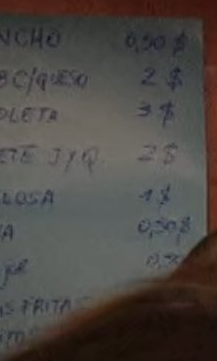 NCHO 0,50 $
BC/QUESO 2 $
OLETA 3 $
ETE J y Q. 2 $
LOSA 1 $
A 0,50 $
0,50
AS FRITAS